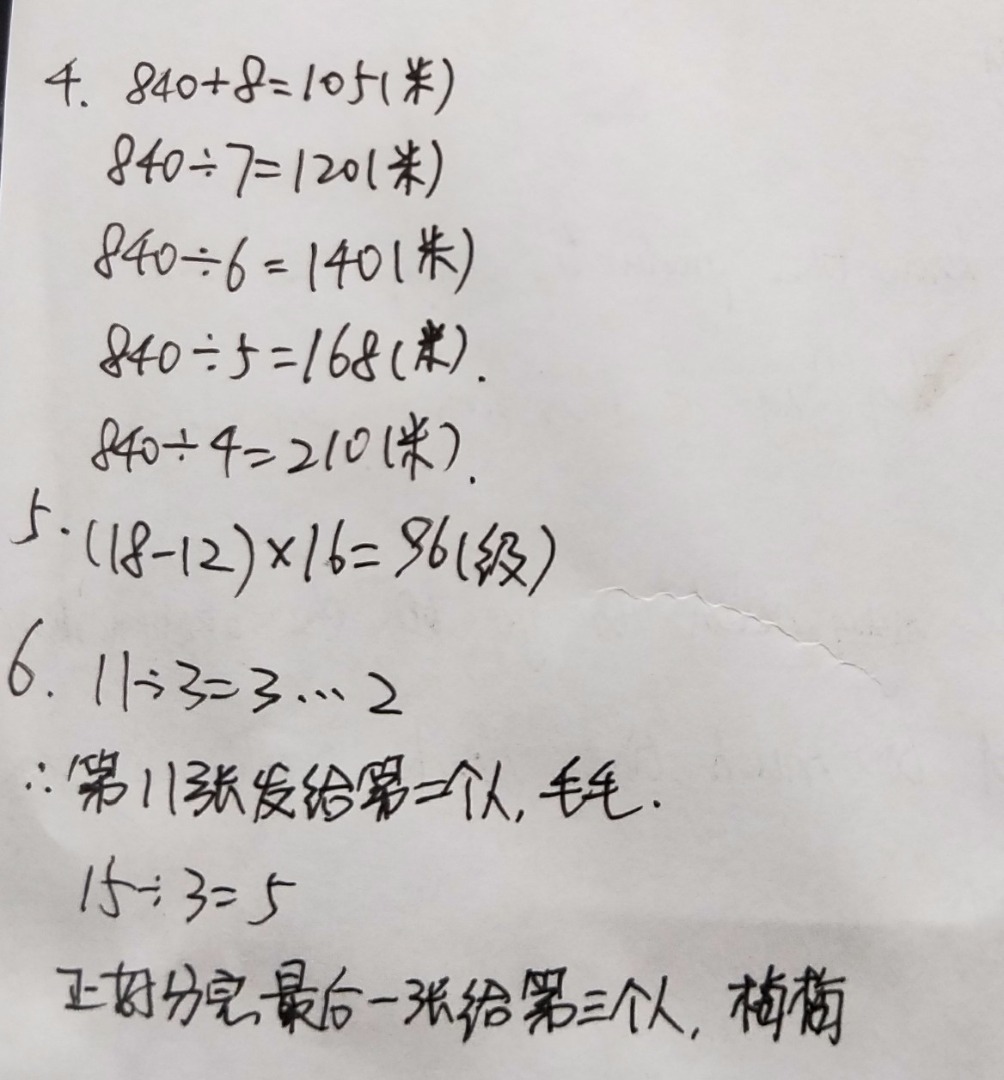 4. 840+8=105(米)
840÷7=120(米)
840÷6=140(米)
840÷5=168(米).
840÷4=210(米).
5.(18-12)×16=96(级)
6. 11÷3=3…2
∴第11张发给第二个人,毛毛.
15÷3=5
正好分完,最后一张给第三个人,梅梅